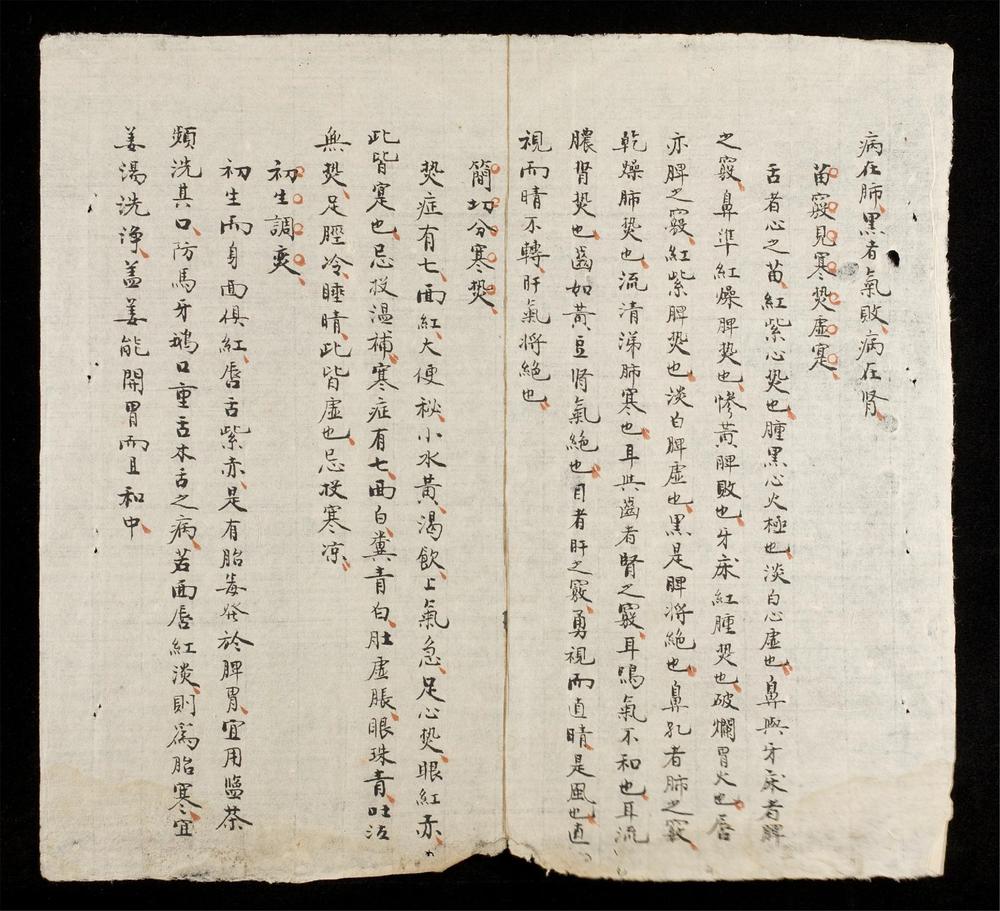 病在肺、黑者氣敗、病在腎、
苗竅見寒𤍠虛寔、
舌者心之苗、紅紫心𤍠也、腫黑心火極也、淡白心虛也、鼻與牙床者脾
之竅、鼻準紅燥脾𤍠也、慘黃脾敗也、牙床紅腫𤍠也、破爛胃火也、唇
亦脾之竅、紅紫脾𤍠也、淡白脾虛也、黑是脾將絕也、鼻孔者肺之竅
乾燥肺𤍠也、流清涕肺寒也、耳與齒者腎之竅、耳鳴氣不和也、耳流
膿腎𤍠也、齒如黃豆腎氣絕也、目者肝之竅、勇視而直睛是風也、直
視而睛不轉、肝氣將絕也、
簡切分寒𤍠、
𤍠症有七、面紅、大便秘、小水黃、渴飲、上氣急、足心𤍠、眼紅赤、
此皆寔也、忌投溫補、寒症有七、面白、糞青白、肚虛脹、眼珠青、吐泻
無𤍠、足脛冷、睡睛、此皆虛也、忌投寒凉、
初生調爕、
初生而身面俱紅、唇舌紫赤、是有胎毒發於脾胃、宜用盬茶
頻洗其口、防馬牙鵝口重舌木舌之病、若面唇紅淡、則爲胎寒、宜
姜湯洗淨、盖姜能開胃而且和中、